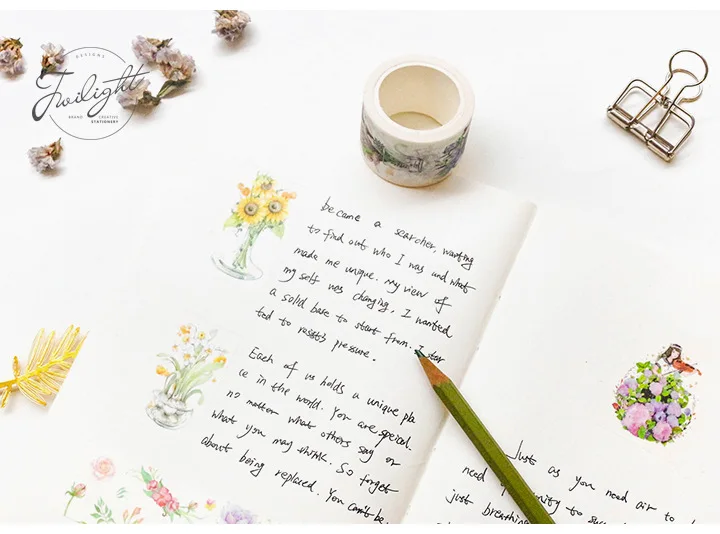 DESIGNS
Twilight
BRAND CREATIVE
STATIONERY
became a searcher, wanting
to find out who I was and what
made me unique. My view of
my self was changing, I wanted
a solid base to start from. I star
ted to resist's pressure.
Each of us holds a unique pla
ce in the world. You are speical.
no matter what others say or
what you may think. So forget
about being replaced. You can't be.
Just as you need air to
need
just breathing